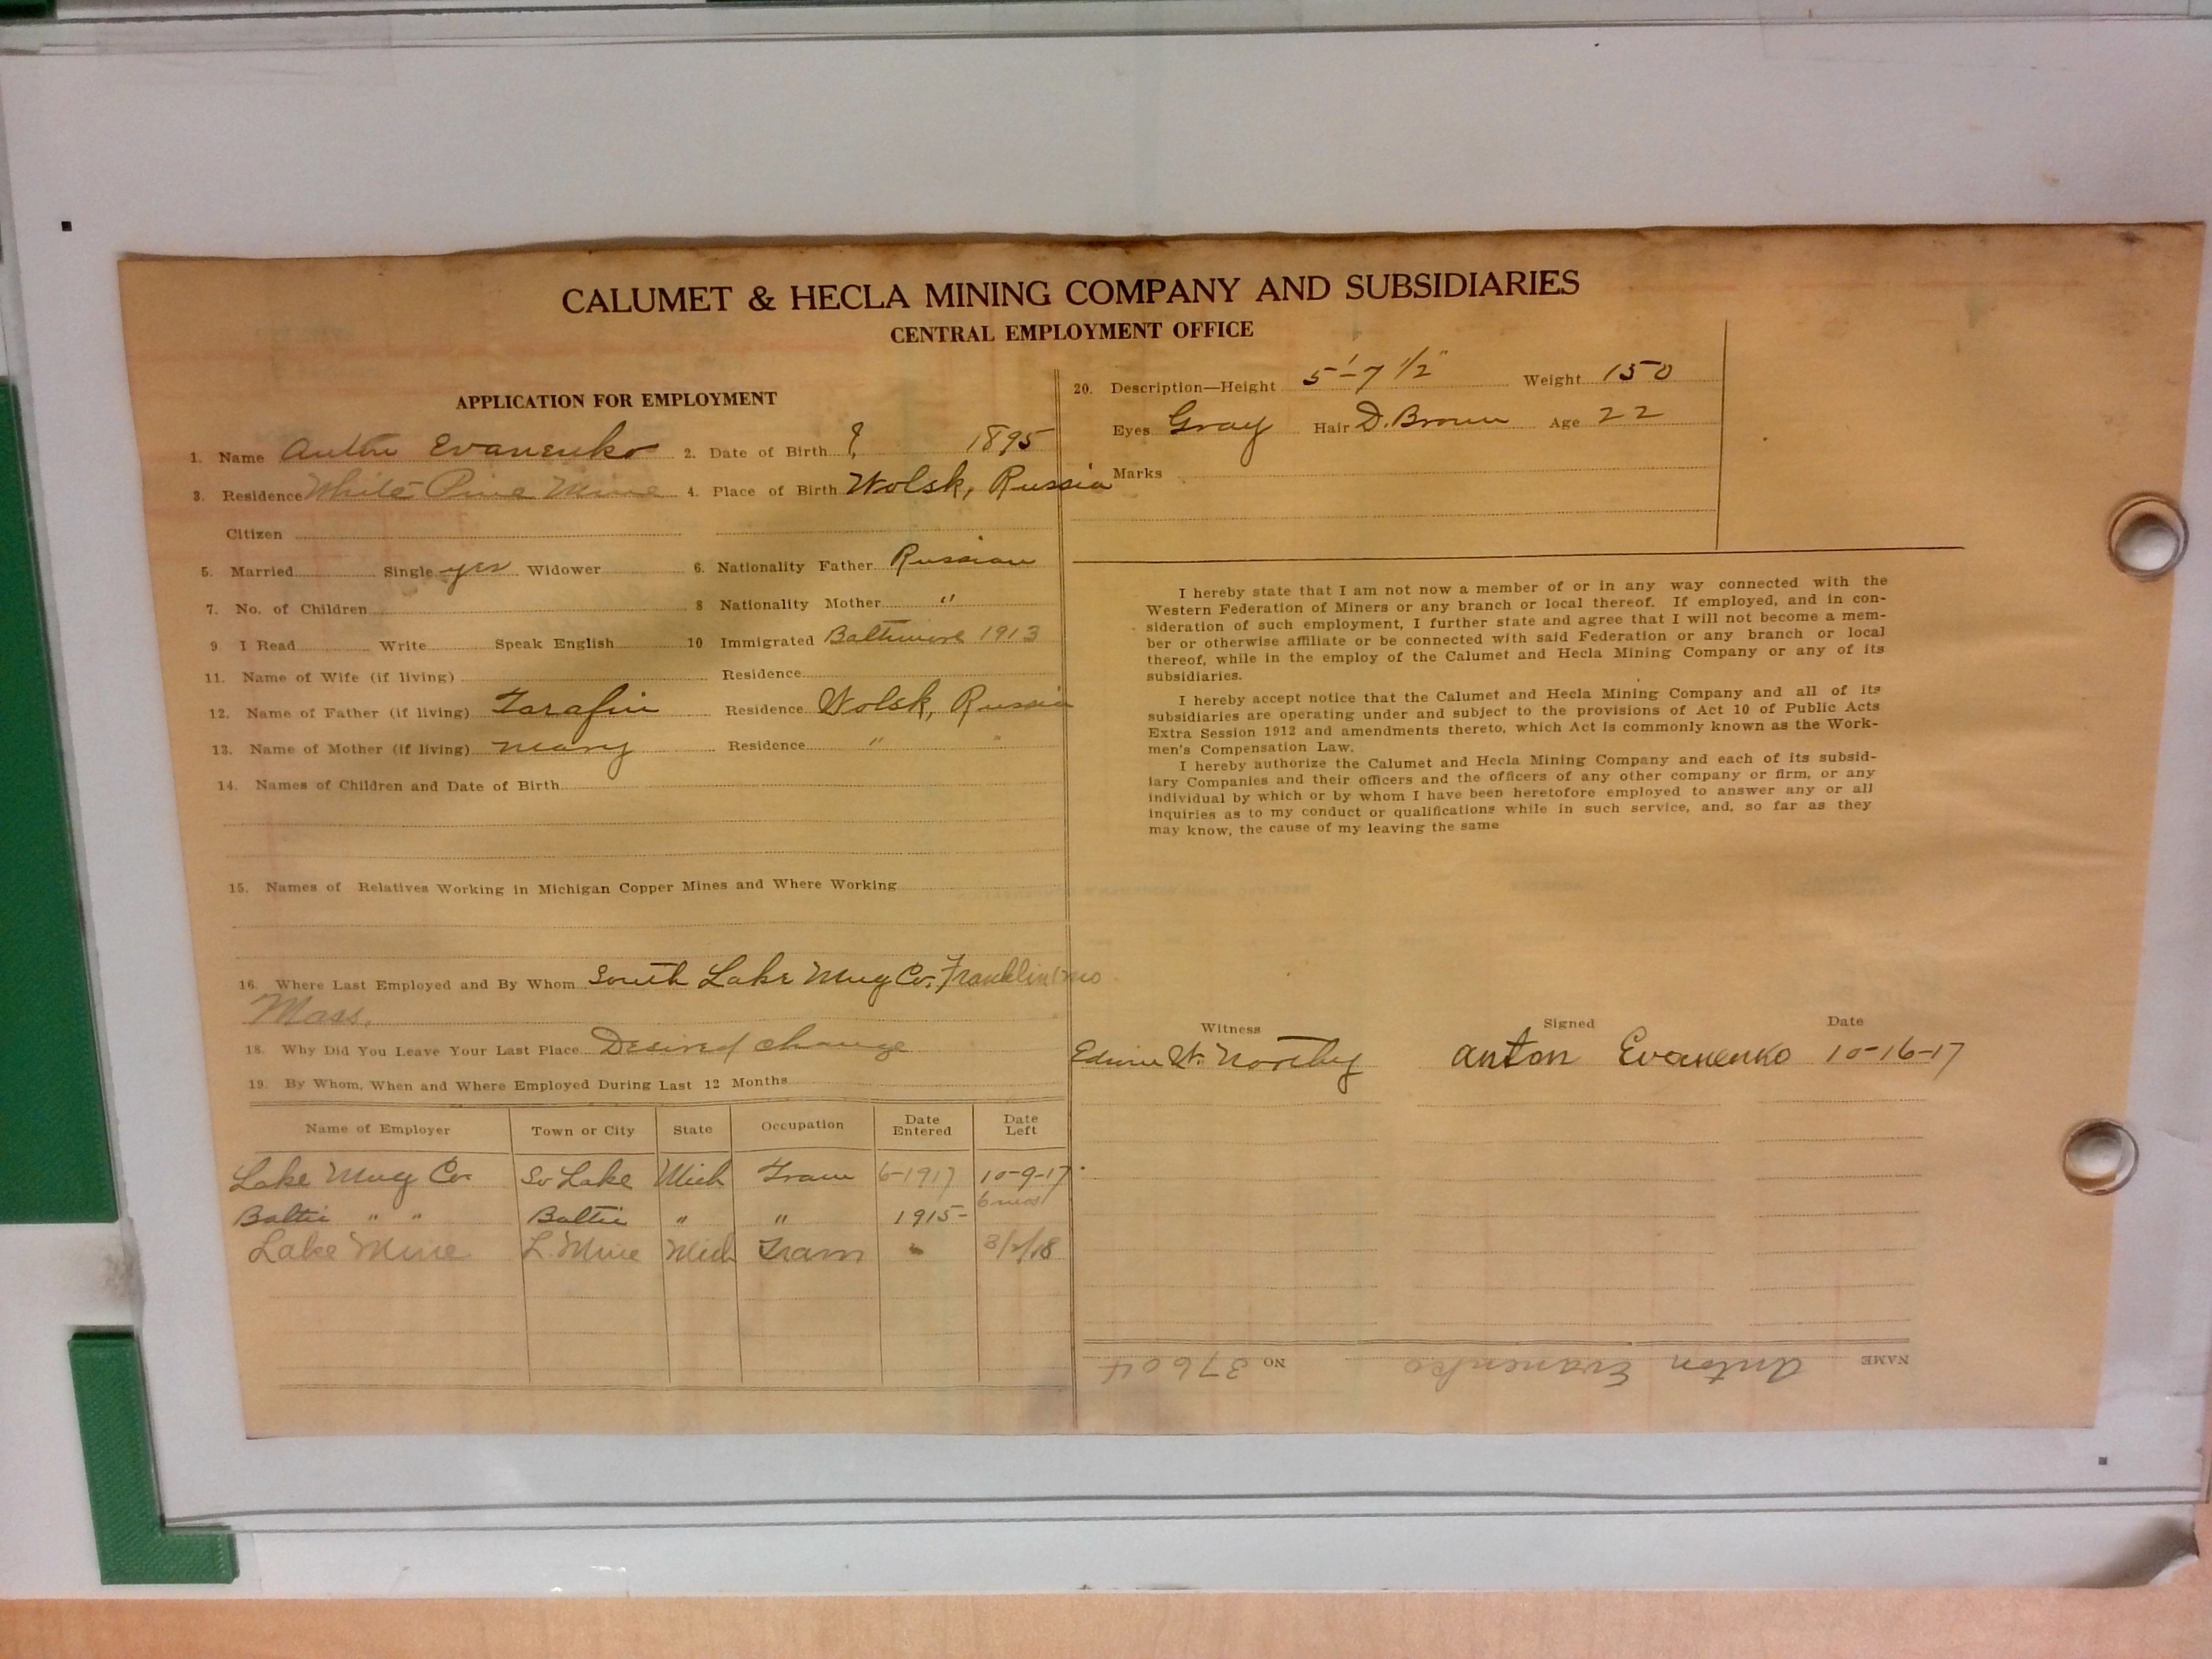 CALUMET & HECLA MINING COMPANY AND SUBSIDIARIES
CENTRAL EMPLOYMENT OFFICE
APPLICATION FOR EMPLOYMENT
1. Name Evanenko 2. Date of Birth ? 1895
3. Residence White Pine Mine 4. Place of Birth Wolsk, Russia
Citizen
5. Married Single yes Widower 6. Nationality Father Russian
7. No. of Children 8 Nationality Mother "
9. I Read Write Speak English 10 Immigrated Baltimore 1913
11. Name of Wife (if living) Residence
12. Name of Father (if living) Tarafin Residence Wolsk, Russia
13. Name of Mother (if living) Mary Residence " "
14. Names of Children and Date of Birth
15. Names of Relatives Working in Michigan Copper Mines and Where Working
16. Where Last Employed and By Whom South Lake Mng Co. Franklin
Mass.
18. Why Did You Leave Your Last Place Desired change
19. By Whom, When and Where Employed During Last 12 Months
Name of Employer Town or City State Occupation Date Entered Date Left
Lake Mng Co. So Lake Mich Tram 6-1917 10-9-17
Baltic " " Baltic " " 1915- 6 mos
Lake Mine L. Mine Mich Tram " 3/2/18
20. Description—Height 5'-7 1/2" Weight 150
Eyes Gray Hair D. Brown Age 22
Marks
I hereby state that I am not now a member of or in any way connected with the
Western Federation of Miners or any branch or local thereof. If employed, and in con-
sideration of such employment, I further state and agree that I will not become a mem-
ber or otherwise affiliate or be connected with said Federation or any branch or local
thereof, while in the employ of the Calumet and Hecla Mining Company or any of its
subsidiaries.
I hereby accept notice that the Calumet and Hecla Mining Company and all of its
subsidiaries are operating under and subject to the provisions of Act 10 of Public Acts
Extra Session 1912 and amendments thereto, which Act is commonly known as the Work-
men's Compensation Law.
I hereby authorize the Calumet and Hecla Mining Company and each of its subsid-
iary Companies and their officers and the officers of any other company or firm, or any
individual by which or by whom I have been heretofore employed to answer any or all
inquiries as to my conduct or qualifications while in such service, and, so far as they
may know, the cause of my leaving the same
Witness Signed Date
Edwin W. Northey Anton Evanenko 10-16-17
NAME Anton Evanenko NO 37604